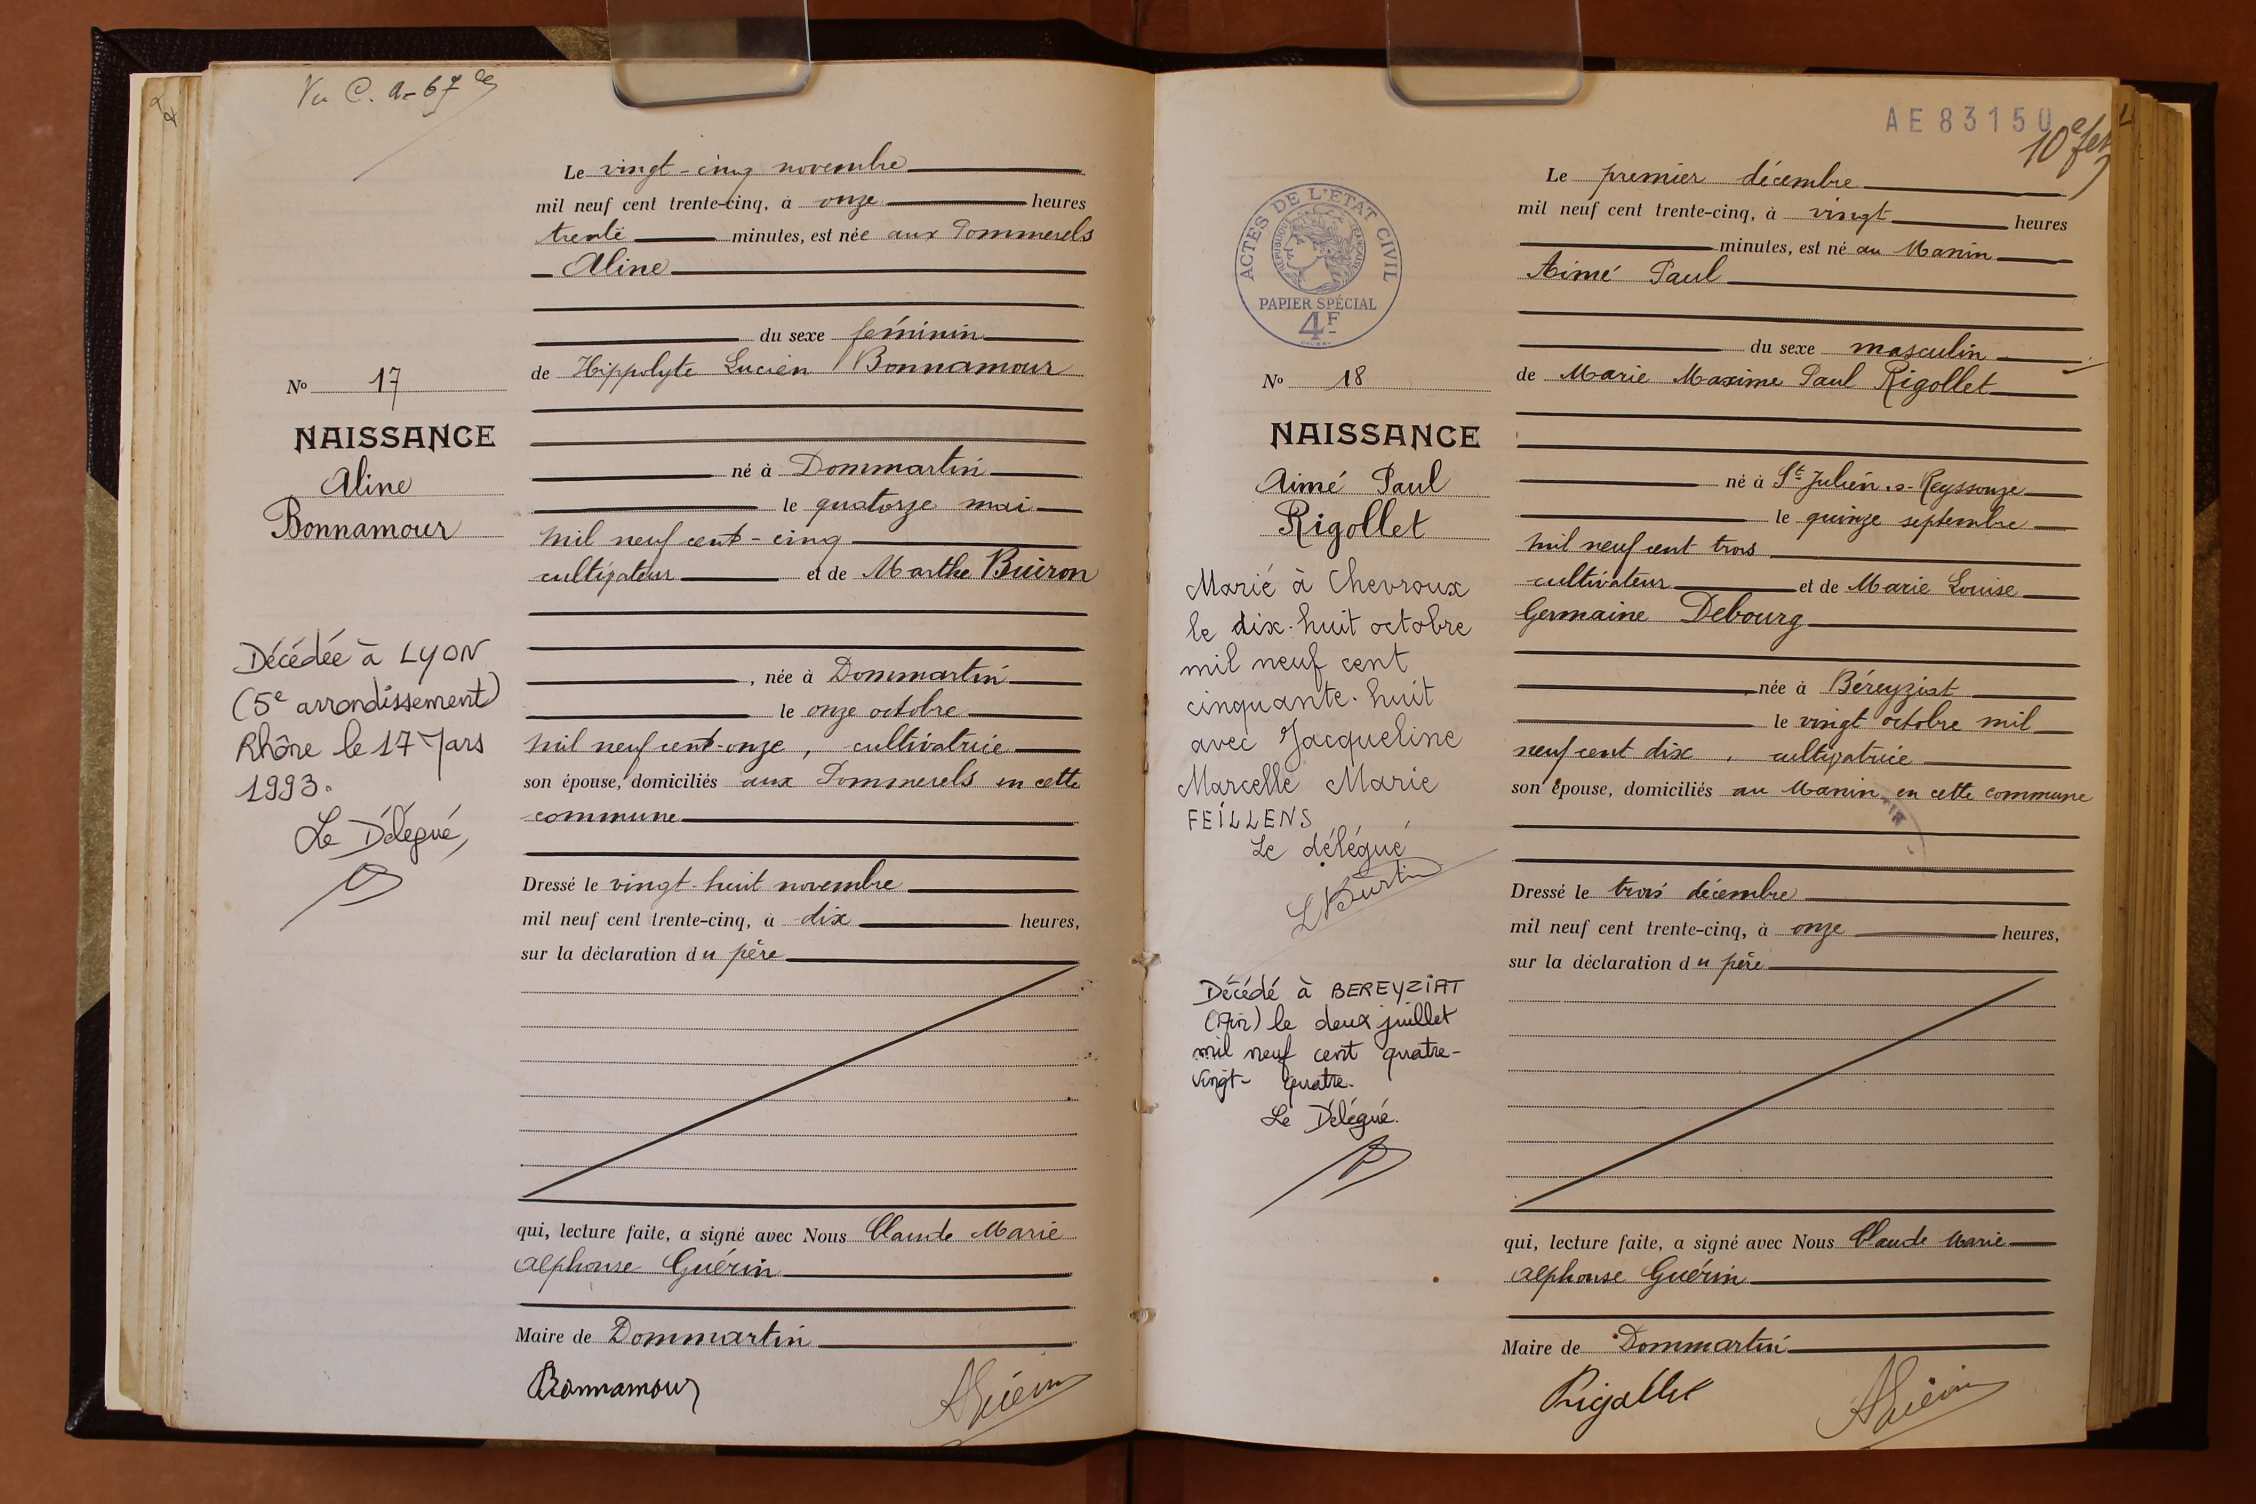 Vu C. a. 67
Le vingt-cinq novembre
mil neuf cent trente-cinq, à onze heures
trente minutes, est née aux Pommerels
Aline
du sexe féminin
de Hippolyte Lucien Bonnamour
N° 17
NAISSANCE
Aline
Bonnamour
né à Dommartin
le quatorze mai
mil neuf cent-cinq
cultivateur et de Marthe Buiron
Décédée à LYON
(5e arrondissement)
Rhône le 17 Mars
1993.
Le Délégué,
, née à Dommartin
le onze octobre
mil neuf cent-onze, cultivatrice
son épouse, domiciliés aux Pommerels en cette
commune
Dressé le vingt-huit novembre
mil neuf cent trente-cinq, à dix heures,
sur la déclaration du père
qui, lecture faite, a signé avec Nous Claude Marie
Alphonse Guérin
Maire de Dommartin
Bonnamour
AGuérin
AE83150
10e fet
ACTES DE L'ETAT CIVIL
REPUBLIQUE FRANÇAISE
PAPIER SPÉCIAL
4F
Le premier décembre
mil neuf cent trente-cinq, à vingt heures
minutes, est né au Manin
Aimé Paul
du sexe masculin
de Marie Maxime Paul Rigollet
N° 18
NAISSANCE
Aimé Paul
Rigollet
né à St Julien-s-Reyssouze
le quinze septembre
mil neuf cent trois
cultivateur et de Marie Louise
Germaine Debourg
Marié à Chevroux
le dix-huit octobre
mil neuf cent
cinquante-huit
avec Jacqueline
Marcelle Marie
FEILLENS
Le délégué
LBurtin
née à Béreyziat
le vingt octobre mil
neuf cent dix, cultivatrice
son épouse, domiciliés au Manin en cette commune
Dressé le trois décembre
mil neuf cent trente-cinq, à onze heures,
sur la déclaration du père
Décédé à BEREYZIAT
(Ain) le deux juillet
mil neuf cent quatre-
vingt-quatre.
Le Délégué.
qui, lecture faite, a signé avec Nous Claude Marie
Alphonse Guérin
Maire de Dommartin
Rigollet
AGuérin